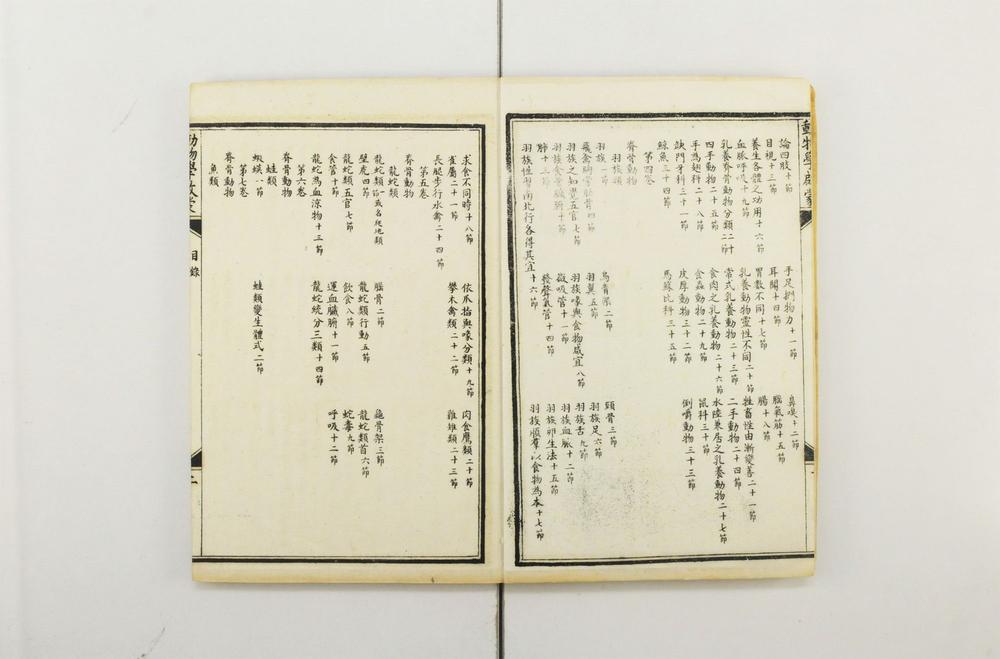 動物學啟蒙
論四肢十節
手足捫物力十一節
鼻嗅十二節
目視十三節
耳聞十四節
腦氣筋十五節
養生各體之功用十六節
胃數不同十七節
腸十八節
血脈呼吸十九節
乳養動物靈性不同二十節
牲畜性由漸變善二十一節
乳養脊骨動物分類二十二節
常式乳養動物二十三節
二手動物二十四節
四手動物二十五節
食肉之乳養動物二十六節
水陸兼居之乳養動物二十七節
手為翅科二十八節
食蟲動物二十九節
鼠科三十節
缺門牙科三十一節
皮厚動物三十二節
倒嚼動物三十三節
鯨魚三十四節
馬蘇比科三十五節
第四卷
脊骨動物
羽族類
羽族一節
鳥脊梁二節
頭骨三節
飛禽胸膂骨四節
羽翼五節
羽族足六節
羽族之知覺五官七節
羽族喙與食物咸宜八節
羽族舌九節
羽族食管臟腑十節
嶶吸管十一節
羽族血脈十二節
肺十三節
發聲氣管十四節
羽族卵生法十五節
羽族性習南北行各得其宜十六節
羽族順羣以食物為本十七節
求食不同時十八節
依爪指與喙分類十九節
肉食鷹類二十節
雀屬二十一節
攀木禽類二十二節
雞雉類二十三節
長腿步行水禽二十四節
第五卷
脊骨動物
龍蛇類
龍蛇類一或名爬地類節
腦骨二節
龜骨架三節
壁虎四節
龍蛇類行動五節
龍蛇類首六節
龍蛇類五官七節
飲食八節
蛇毒九節
食管十節
運血臟腑十一節
呼吸十二節
龍蛇為血涼物十三節
龍蛇統分三類十四節
第六卷
脊骨動物
蛙類
蝦蟆一節
蛙類變生體式二節
第七卷
脊骨動物
魚類
動物學啟蒙
目錄
二